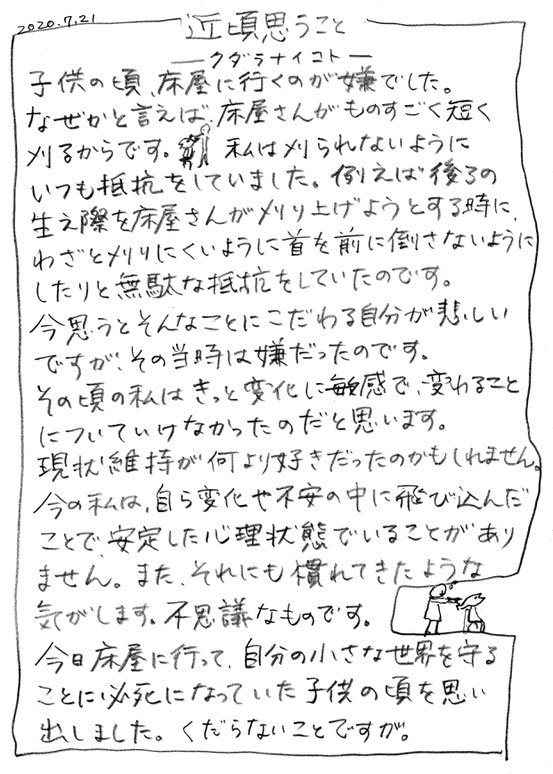 2020.7.21
近頃思うこと
― クダラナイコト ―
子供の頃、床屋に行くのが嫌でした。
なぜかと言えば、床屋さんがものすごく短く
刈るからです。 私は刈られないように
いつも抵抗をしていました。例えば後ろの
生え際を床屋さんが刈り上げようとする時に、
わざと刈りにくいように首を前に倒さないように
したりと無駄な抵抗をしていたのです。
今思うとそんなことにこだわる自分が悲しい
ですが、その当時は嫌だったのです。
その頃の私はきっと変化に敏感で、変わること
についていけなかったのだと思います。
現状維持が何より好きだったのかもしれません。
今の私は、自ら変化や不安の中に飛び込んだ
ことで、安定した心理状態でいることがあり
ません。また、それにも慣れてきたような
気がします。不思議なものです。
今日床屋に行って、自分の小さな世界を守る
ことに必死になっていた子供の頃を思い
出しました。くだらないことですが。